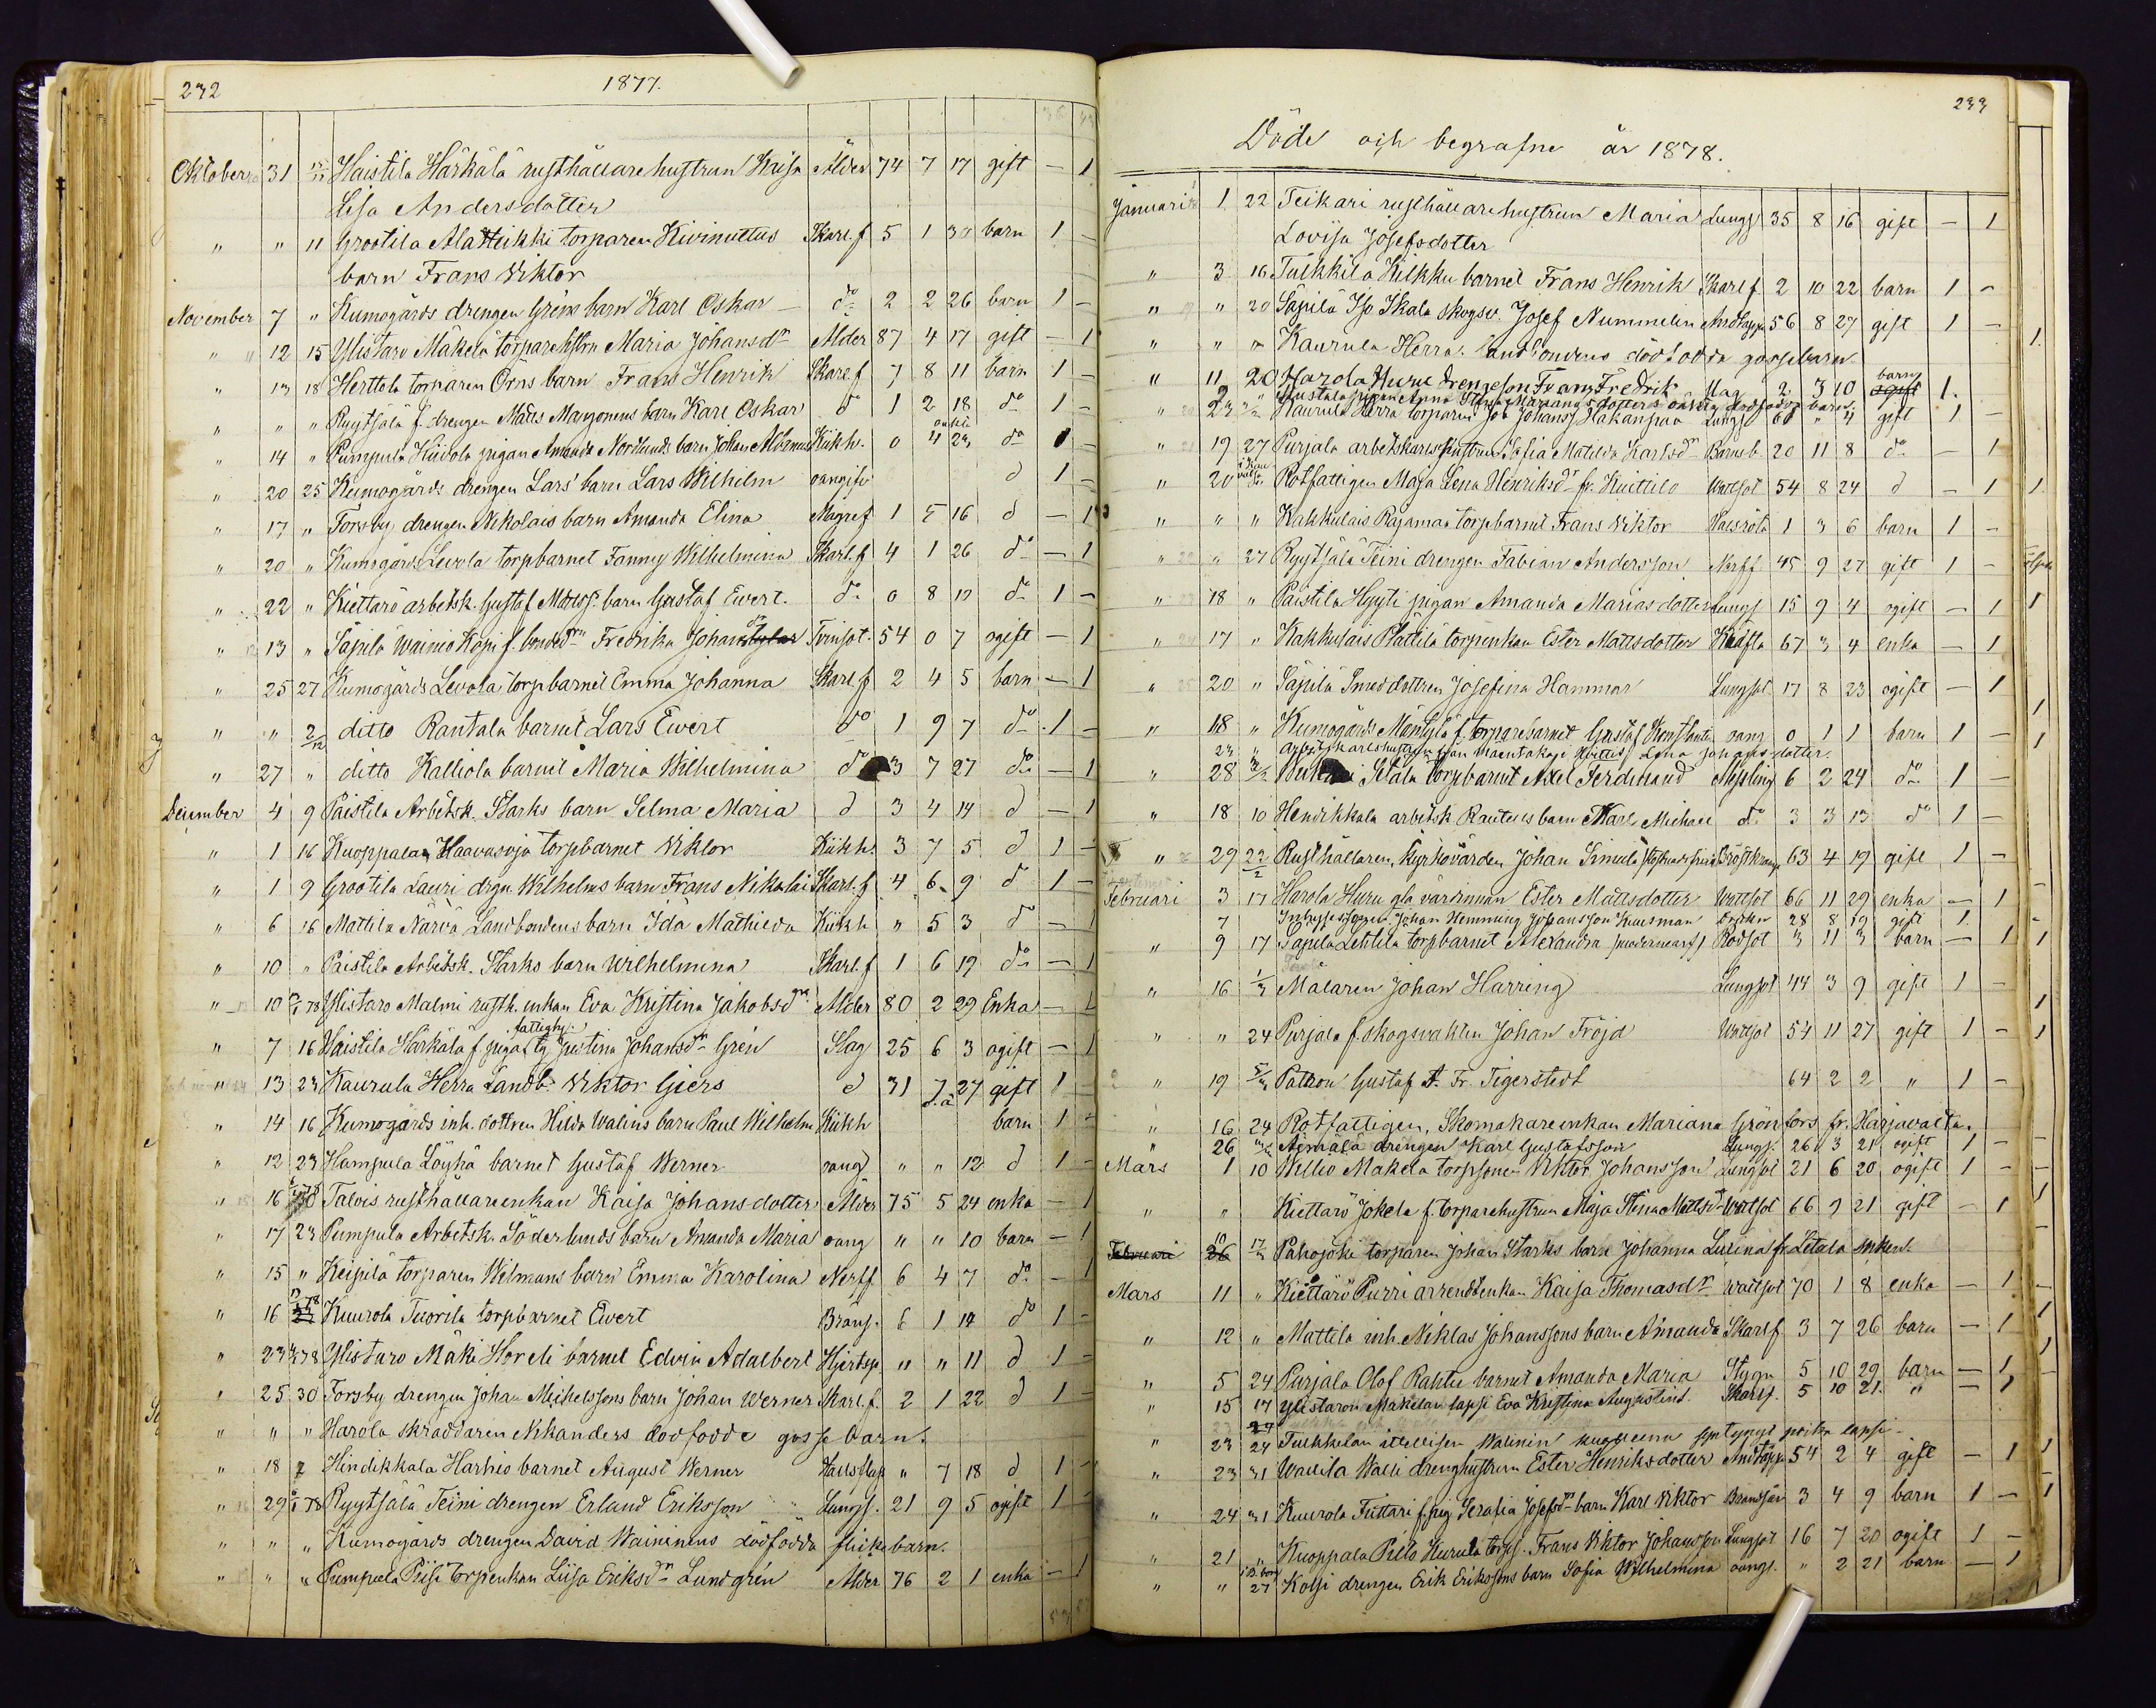 232 1877.
Oktober 31 15/11 Haistila Härkälä rusthållarehustrun Kaisa Ålder 74 7 17 gift — 1
Lisa Andersdotter
" " 11 Grootila Ala Heikki torparen Kivinuttus Skarl.f 5 1 30 barn 1 —
barn Frans Viktor
November 7 " Kumogårds drengen Gréns barn Karl Oskar — do 2 2 26 barn 1 —
" 12 15 Ylistaro Mäkelä torparehstrn Maria Johansdr Ålder 87 4 17 gift — 1
" 13 18 Herttola torparen Örns barn Frans Henrik Skarl.f 7 8 11 barn 1 —
" " " Ryytsälä f. drengen Matts Maryonens barn Karl Oskar do 1 2 18 do 1 —
" 14 " Pumpula Hiidola pigan Amanda Nordlunds barn Johan Kikh. 0 4 23 do 1
" 20 25 Kumogårds drengen Lars' barn Lars Wilhelm oangifv d 1 —
" 17 " Forsby drengen Nikolais barn Amanda Elina Magref 1 5 16 d — 1
" 20 " Kumogårds Levola torpbarnet Fanny Wilhelmina Skarl.f 4 1 26 do — 1
" 22 " Kiettarö arbetsk. Gustaf Matts. barn Gustaf Evert. do 0 8 10 do 1 —
" 13 " Säpilä Wainio Köpi f. bondedrn Fredrika Johansdr Tvinsot. 54 0 7 ogift — 1
" 25 27 Kumogårds Levola torpbarnet Emma Johanna Skarl.f 2 4 5 barn — 1
" " 2/12 ditto Rantala barnet Lars Evert do 1 9 7 do 1 —
" 27 " ditto Kalliola barnet Maria Wilhelmina do 3 7 27 do — 1
December 4 9 Paistila Arbetsk. Starks barn Selma Maria d 3 4 14 d — 1
" 1 16 Kuoppala Haavasoja torpbarnet Viktor Kikh. 3 7 5 d 1 —
" 1 9 Grootila Lauri drgn. Wilhelms barn Frans Nikolai Skarl.f 4 6 9 d 1 —
" 6 16 Mattila Närvä Landbondens barn Ida Mathilda Kikh " 5 3 do — 1
" 10 " Paistila Arbetsk. Starks barn Wilhelmina Skarl.f 1 6 19 do — 1
" 10 78 Ylistaro Malmi rusth. enkan Eva Kristina Jakobsdr Ålder 80 2 29 Enka — 1
fattighj.
" 7 16 Haistila Härkälä f. pigan Justina Johansdr Grén Slag 25 6 3 ogift — 1
" 13 23 Kaurula Herra Landb. Viktor Giers d 31 7 27 gift 1 —
" 14 16 Kumogårds inh. dottren Hilda Walins barn Paul Wilhelm Kikh barn 1 —
" 12 23 Hampula Löyhä barnet Gustaf Werner oang " " 12 d 1 —
" 16 Talois rusthållareenkan Kaisa Johansdotter Ålder 75 5 24 enka — 1
" 17 23 Pumpula Arbetsk. Söderlunds barn Amanda Maria oang " " 10 barn — 1
" 15 " Keipilä torparen Wilmans barn Emma Karolina Nerff 6 4 7 do — 1
" 16 Kuurola Tuorila torpbarnet Evert Bräns. 6 1 14 do 1 —
" 23 78 Ylistaro Mäki Horeli barnet Edvin Adalbert Hjertsp. " " 11 d 1 —
" 25 30 Forsby drengen Johan Michelssons barn Johan Werner Skarl.f. 2 1 22 d 1 —
" " " Harola skräddaren Ekanders dödfödde gosse barn.
" 18 7 Hindikkala Harhio barnet August Werner " 7 18 d 1 —
" 29 78 Ryytsälä Teini drengen Erland Eriksson Lungs. 21 9 5 ogift 1 —
" " " Kumogårds drengen David Waininens dödfödda flickebarn.
" " " Pumpula Piisi torpenkan Liisa Eriksdr Lundgrén Ålder 76 2 1 enka — 1
233
Döde och begrafne år 1878.
Januari 1 22 Teikari rusthållarehustrun Maria Lungs 35 8 16 gift — 1
Lovisa Josefsdotter
" 3 16 Tulkkila Kilkku barnet Frans Henrik Skarl.f 2 10 22 barn 1 —
" " 20 Säpilä Iso Skala skogsv. Josef Nummelin Andtäppa 56 8 27 gift 1 —
" " " Kaurula Herra landbondens dödfödda gossebarn
" 11 20 Harola Huru drengeson Frans Fredrik Mag 2 3 10 barn 1.
2 " pigan Anna Stina Mariansdotters oäkta dödfödda barn
" 23 Kaurula Herra torparen Job Johanss Hakanpää Lungs 60 " 4 gift 1 —
" 19 27 Purjala arbetskarlshustrun Sofia Matilda Karlsdr Barnsb. 20 11 8 do — 1
" 20 Rotfattigen Maja Lena Henriksdr fr. Kuittilo Wattsot 54 8 24 d — 1
" " " Kakkulais Rajamaa torpbarnet Frans Viktor Halsröta 1 3 6 barn 1 —
" " 27 Ryytsälä Teini drengen Fabian Andersson Nerff 45 9 27 gift 1 —
" 18 " Paistila Hyyti pigan Amanda Mariasdotter Lungs 15 9 4 ogift — 1
" 17 " Kakkulais Plättilä torpenkan Ester Mattsdotter Kräfta 67 3 4 enka — 1
" 20 " Säpilä Smeddottren Josefina Hammar Lungsot 17 8 23 ogift — 1
" 18 " Kumogårds Mäntylä f. torparebarnet Gustaf Konstantin oang 0 1 1 barn 1 —
23 " Arbetskarlshustrun från Lena Johansdotter.
" 28 Setälä torpbarnet Axel Ferdinand Messling 6 2 24 do 1 —
" 18 10 Hendikkala arbetsk Rautells barn Karl Michael do 3 3 13 do 1 —
" 29 22/2 Rusthållaren, Kyrkovärden Johan Simula Bröstkramp 63 4 19 gift 1 —
Februari 3 17 Harola Huru gla värdinnan Ester Mattsdotter Wattsot 66 11 29 enka — 1
7 Inhysessonen Johan Hemming Johansson Kansman 28 8 19 gift 1
" 9 17 Säpilä Lehtila torpbarnet Alexandra Rödsot 3 11 3 barn — 1
" 16 1/3 Målaren Johan Harring Lungsot 44 3 9 gift 1 —
" " 24 Purjala f. skogsvakten Johan Fröjd Wattsot 54 11 27 gift 1 —
" 19 5/3 Patron Gustaf A. Fr. Tigerstedt 64 2 2 " 1 —
" 16 24 Rotfattigen, Skomakareenkan Mariana Grönfors fr. Harjavalta.
" 26 Äimälä drengen Karl Gustafsson Lungs. 26 3 21 ogift 1 —
Mars 1 10 Willio Mäkelä torpsonen Viktor Johansson Lungsot 21 6 20 ogift 1 —
" " Kiettarö Jokela f. torparehustrun Maja Stina Mattsdr Wattsot 66 9 21 gift — 1
Februari 26 10 17/3 Pahojoki torparen Johan Starks barn Johanna Lusina fr. Letala
Mars 11 " Kiettarö Purri arrendtenkan Kaisa Thomasdr Wattsot 70 1 8 enka — 1
" 12 " Mattila inh. Niklas Johanssons barn Amanda Skarlf 3 7 26 barn — 1
" 5 24 Purjala Olof Rahtu barnet Amanda Maria Stygn 5 10 29 barn — 1
" 15 17 Ylistaron Mäkelän lapsi Eva Kristina Augustint. Skarlf. 5 10 21. " — 1
" 23 24 Tulkkilan itsellisen Walinin kuolleena syntynyt poika lapsi
" 23 31 Wallila Walli drenghustrun Ester Henriksdotter Andtäppa 54 2 4 gift — 1
" 24 31 Kuurola Futtari f. pig Serafia Josefsdr barn Karl Viktor Brännsår 3 4 9 barn 1 —
" 21 " Kuoppala Pillo Kurula torps. Frans Viktor Johansson Lungsot 16 7 20 ogift 1 —
" " 27 Kolsi drengen Erik Erikssons barn Sofia Wilhelmina oangs. " 2 21 barn — 1